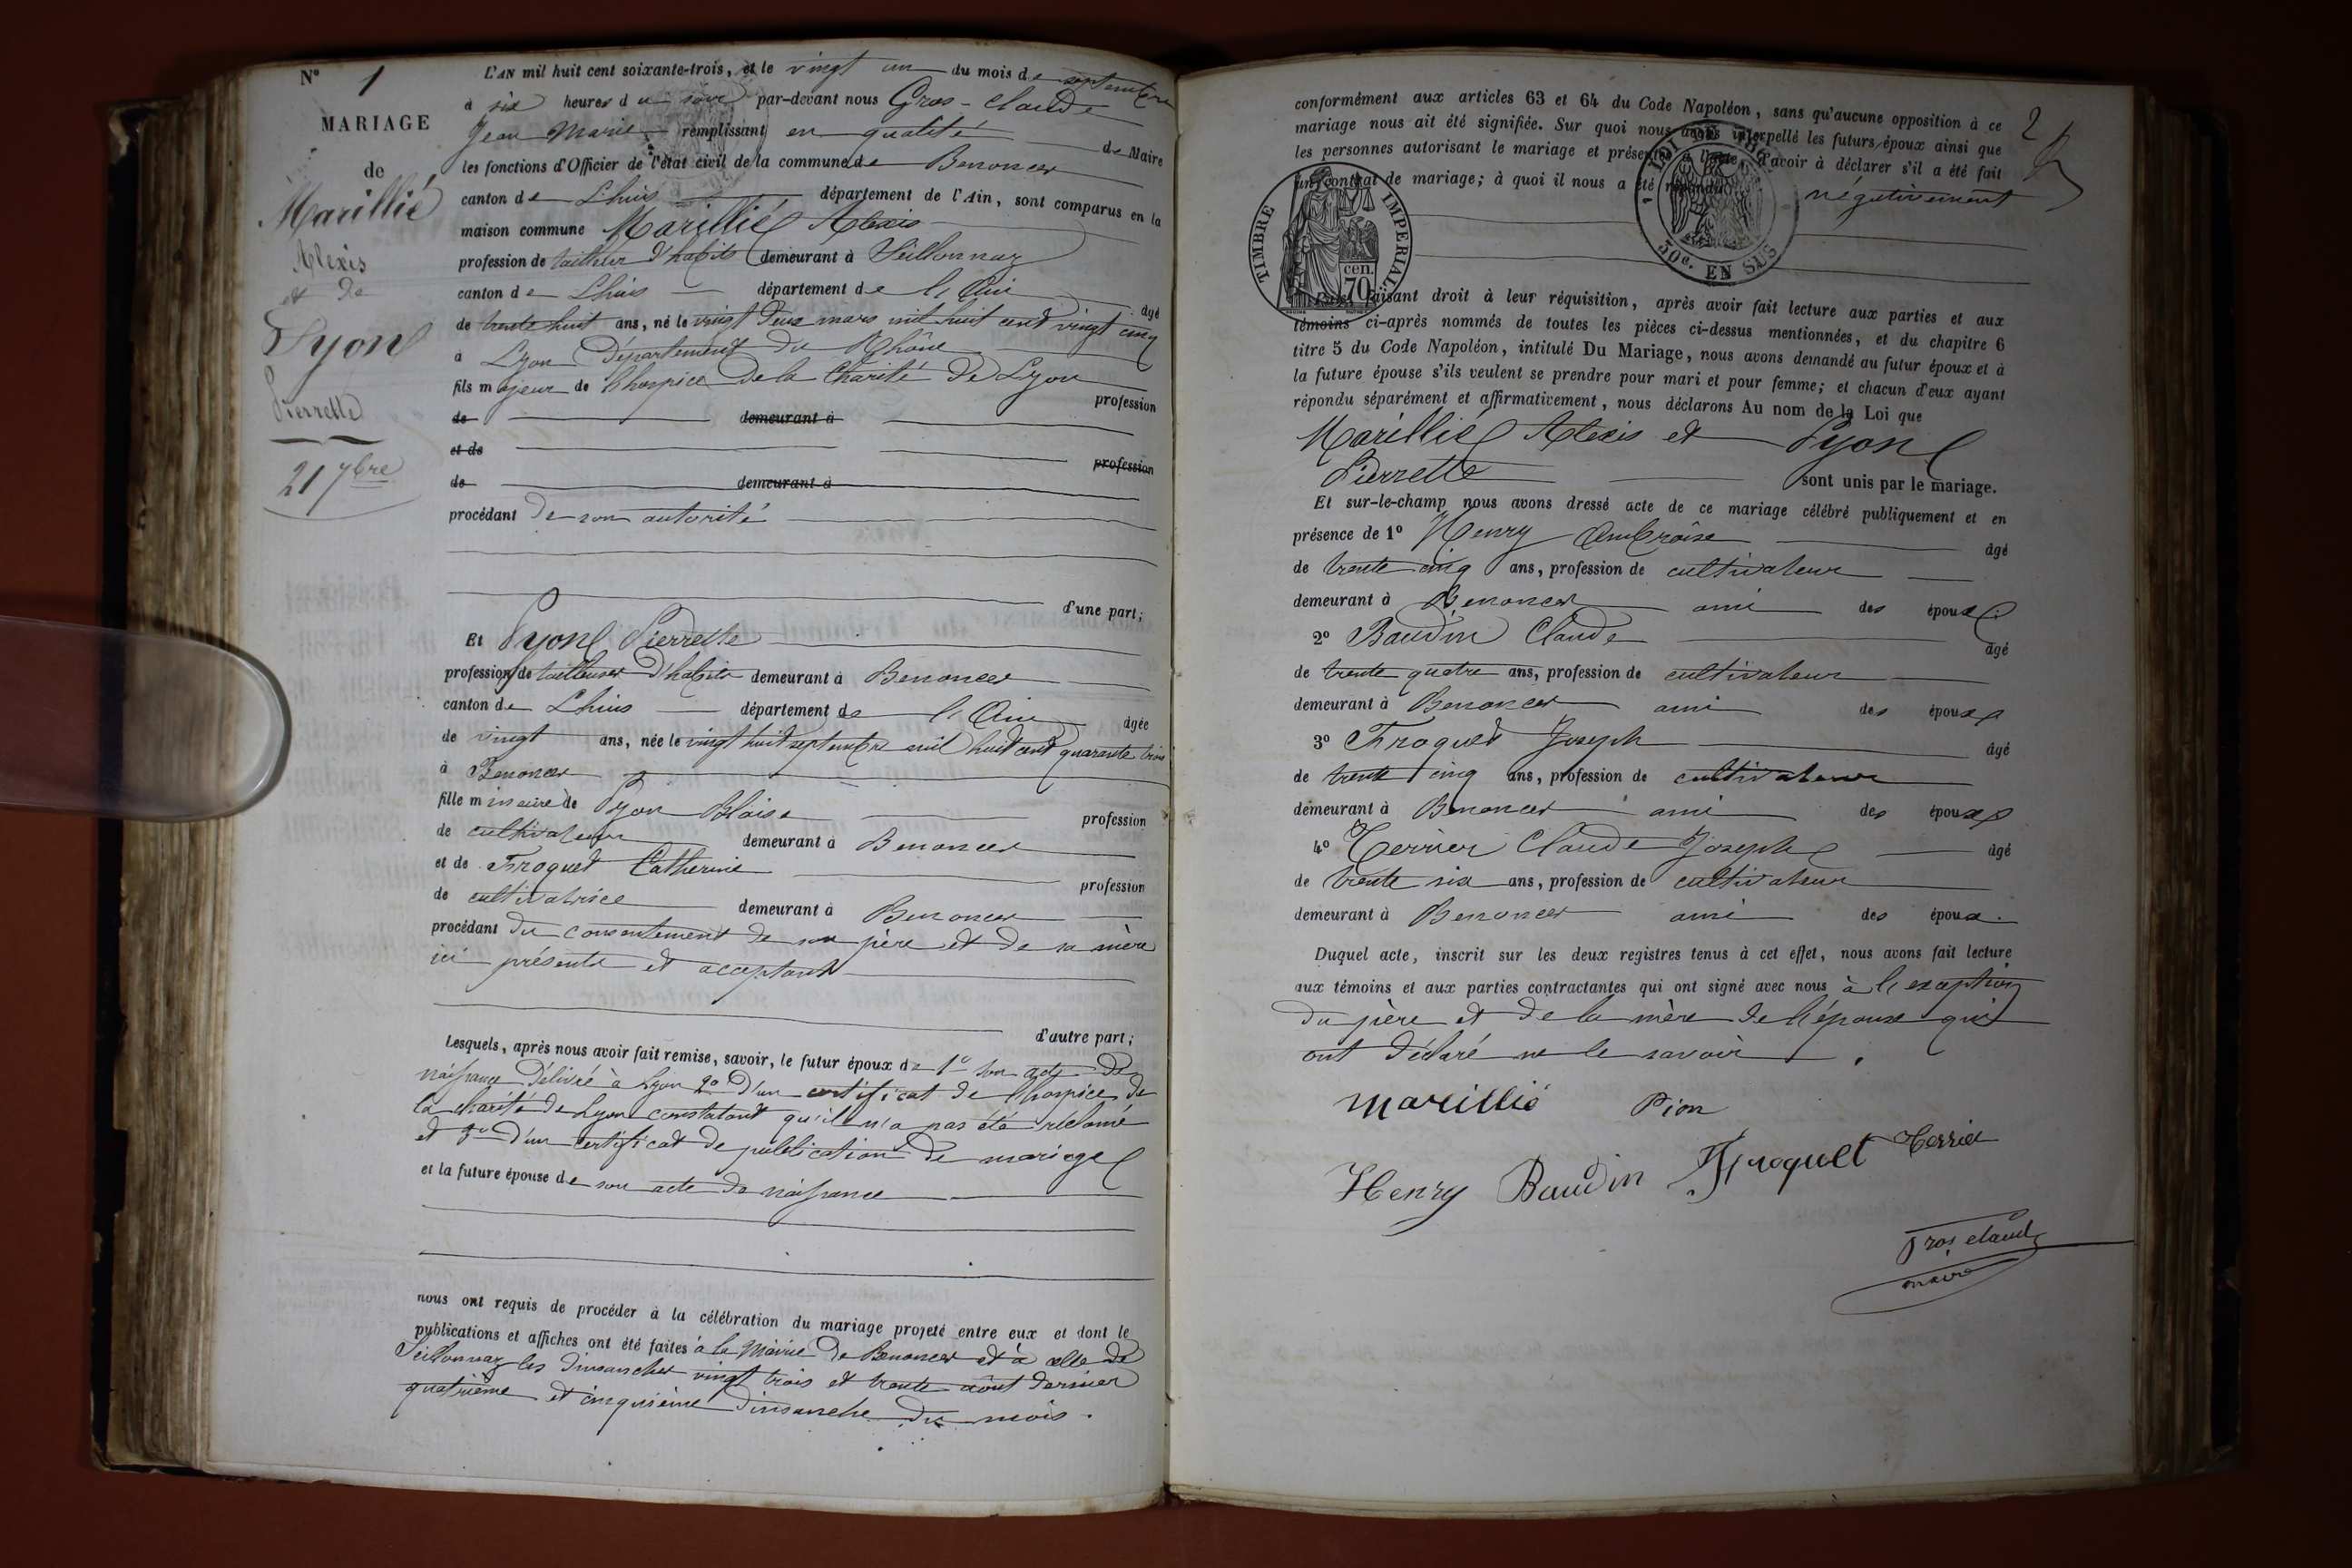 N° 1
MARIAGE
de
Marillié
Alexis
et de
Pyon
Pierrette
21 7bre
L'AN mil huit cent soixante-trois, et le vingt un du mois de septembre
à six heures du soir par-devant nous Gros-Claude
Jean Marie remplissant en qualité de Maire
les fonctions d'Officier de l'état civil de la commune de Benonces
canton de Lhuis département de l'Ain, sont comparus en la
maison commune Marillié Alexis
profession de tailleur d'habits demeurant à Seillonnaz
canton de Lhuis département de l'Ain âgé
de trente huit ans, né le vingt deux mars mil huit cent vingt cinq
à Lyon Département du Rhône
fils majeur de l'hospice de la Charité de Lyon profession
de demeurant à
et de profession
de demeurant à
procédant de son autorité
d'une part;
Et Pyon Pierrette
profession de tailleuse d'habits demeurant à Benonces
canton de Lhuis département de l'Ain âgée
de vingt ans, née le vingt huit septembre mil huit cent quarante trois
à Benonces
fille mineure de Pyon Blaise profession
de cultivateur demeurant à Benonces
et de Froquet Catherine profession
de cultivatrice demeurant à Benonces
procédant du consentement de son père et de sa mère
ici présents et acceptants
d'autre part;
Lesquels, après nous avoir fait remise, savoir, le futur époux de 1° son acte de
naissance délivré à Lyon 2° d'un certificat de l'hospice de
la charité de Lyon constatant qu'il n'a pas été réclamé
et 3° d'un certificat de publication de mariage
et la future épouse de son acte de naissance
nous ont requis de procéder à la célébration du mariage projeté entre eux et dont les
publications et affiches ont été faites à la Mairie de Benonces et à celle de
Seillonnaz les dimanches vingt trois et trente août dernier
quatrième et cinquième dimanche du mois.
2
conformément aux articles 63 et 64 du Code Napoléon, sans qu'aucune opposition à ce
mariage nous ait été signifiée. Sur quoi nous avons interpellé les futurs époux ainsi que
les personnes autorisant le mariage et présentes à l'acte, d'avoir à déclarer s'il a été fait
un contrat de mariage; à quoi il nous a été répondu négativement
TIMBRE IMPERIAL
70 cen.
LOI DE
30c. EN SUS
Puis, faisant droit à leur réquisition, après avoir fait lecture aux parties et aux
témoins ci-après nommés de toutes les pièces ci-dessus mentionnées, et du chapitre 6
titre 5 du Code Napoléon, intitulé Du Mariage, nous avons demandé au futur époux et à
la future épouse s'ils veulent se prendre pour mari et pour femme; et chacun d'eux ayant
répondu séparément et affirmativement, nous déclarons Au nom de la Loi que
Marillié Alexis et Pyon
Pierrette sont unis par le mariage.
Et sur-le-champ nous avons dressé acte de ce mariage célébré publiquement et en
présence de 1° Henry Ambroise âgé
de trente cinq ans, profession de cultivateur
demeurant à Benonces ami des époux.
2° Baudin Claude âgé
de trente quatre ans, profession de cultivateur
demeurant à Benonces ami des époux
3° Froquet Joseph âgé
de trente cinq ans, profession de cultivateur
demeurant à Benonces ami des époux
4° Terrier Claude Joseph âgé
de trente six ans, profession de cultivateur
demeurant à Benonces ami des époux.
Duquel acte, inscrit sur les deux registres tenus à cet effet, nous avons fait lecture
aux témoins et aux parties contractantes qui ont signé avec nous à l'exception
du père et de la mère de l'épouse qui
ont déclaré ne le savoir.
Marillié Pion
Henry Baudin Froquet Terrier
Gros claude
maire